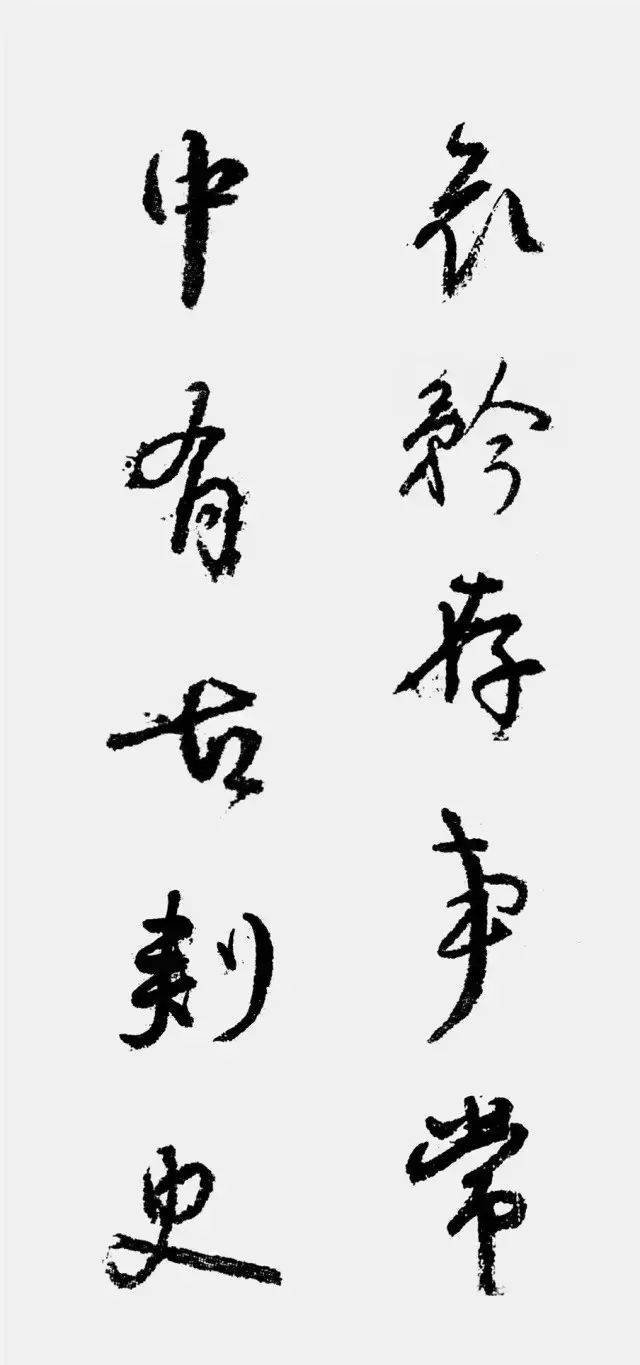 哀矜存事常
中有古刺史